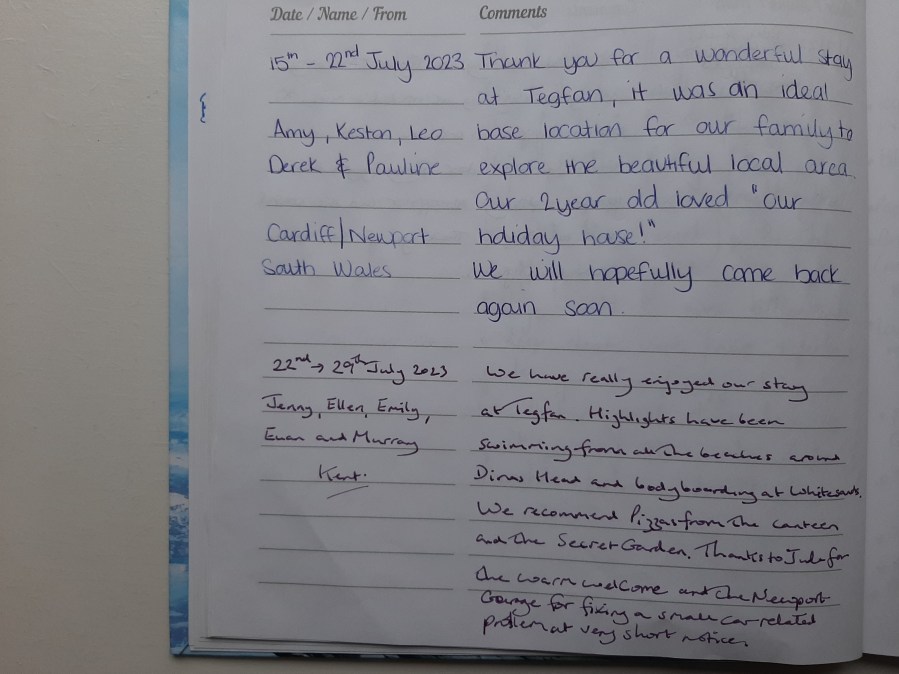 Date / Name / From
Comments
15th - 22nd July 2023
Amy, Keston, Leo
Derek & Pauline
Cardiff/Newport
South Wales
Thank you for a wonderful stay
at Tegfan, it was an ideal
base location for our family to
explore the beautiful local area
Our 2 year old loved "our
holiday house!"
We will hopefully come back
again soon.
22nd → 29th July 2023
Jenny, Ellen, Emily,
Euan and Murray
Kent.
We have really enjoyed our stay
at Tegfan. Highlights have been
swimming from all the beaches around
Dinas Head and bodyboarding at Whitesands.
We recommend Pizzas from the canteen
and the Secret Garden. Thanks to Jude for
the warm welcome and the Newport
Garage for fixing a small car related
problem at very short notice.